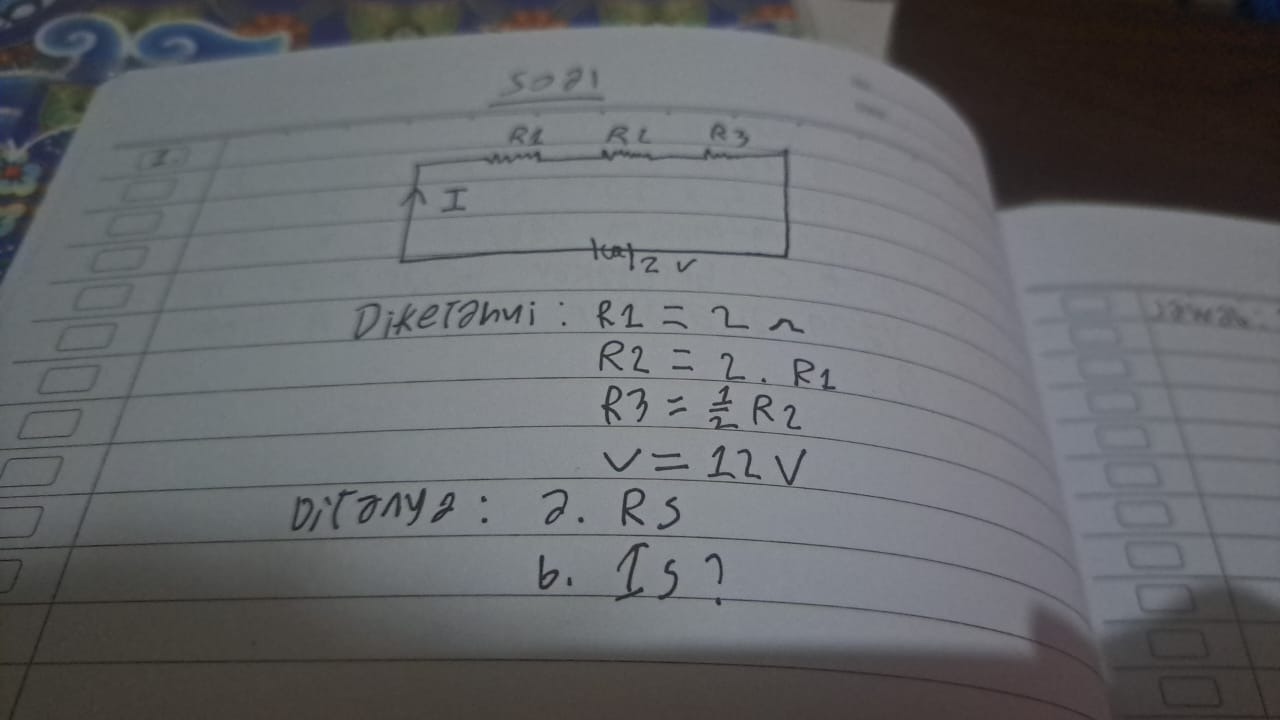 Soal
1.
R1 R2 R3
I
12 V
Diketahui : R1 = 2 Ω
R2 = 2 . R1
R3 = 1/2 R2
V = 12 V
Ditanya : a. Rs
b. Is ?